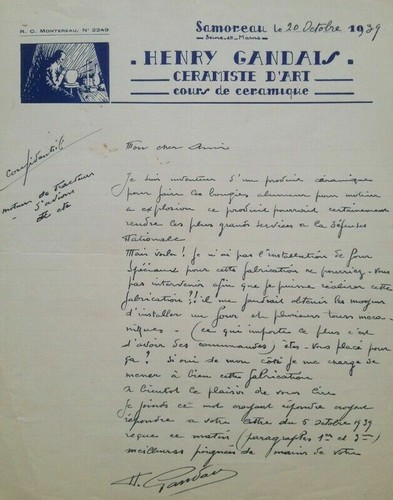 R. C. MONTEREAU, N° 2249
Samoreau le 20 Octobre 1939
Seine-et-Marne
. HENRY GANDAIS .
CERAMISTE D'ART
cours de ceramique
Confidentiel
moteur de tracteur
- d'avions
etc
Mon cher Ami
Je suis inventeur d'un produit céramique
pour faire les bougies allumeur pour moteur
a explosion ce produit pourrait certainement
rendre les plus grands services a la défense
Nationale
Mais voila! je n'ai pas l'installation de four
spéciaux pour cette fabrication ne pourriez-vous
pas intervenir afin que je puisse réaliser cette
fabrication?! il me faudrait obtenir les moyens
d'installer un four et plusieurs tours meca-
niques - (ce qui importe le plus c'est
d'avoir des commandes) etes-vous placé pour
ça? si oui de mon côté je me charge de
mener à bien cette fabrication
a bientot le plaisir de vous lire
Je joinds ce mot croyant répondre croyant
répondre a votre lettre du 5 octobre 39
reçue ce matin (paragraphes 1er et 3me)
meilleures poignées de mains de votre
H. Gandais